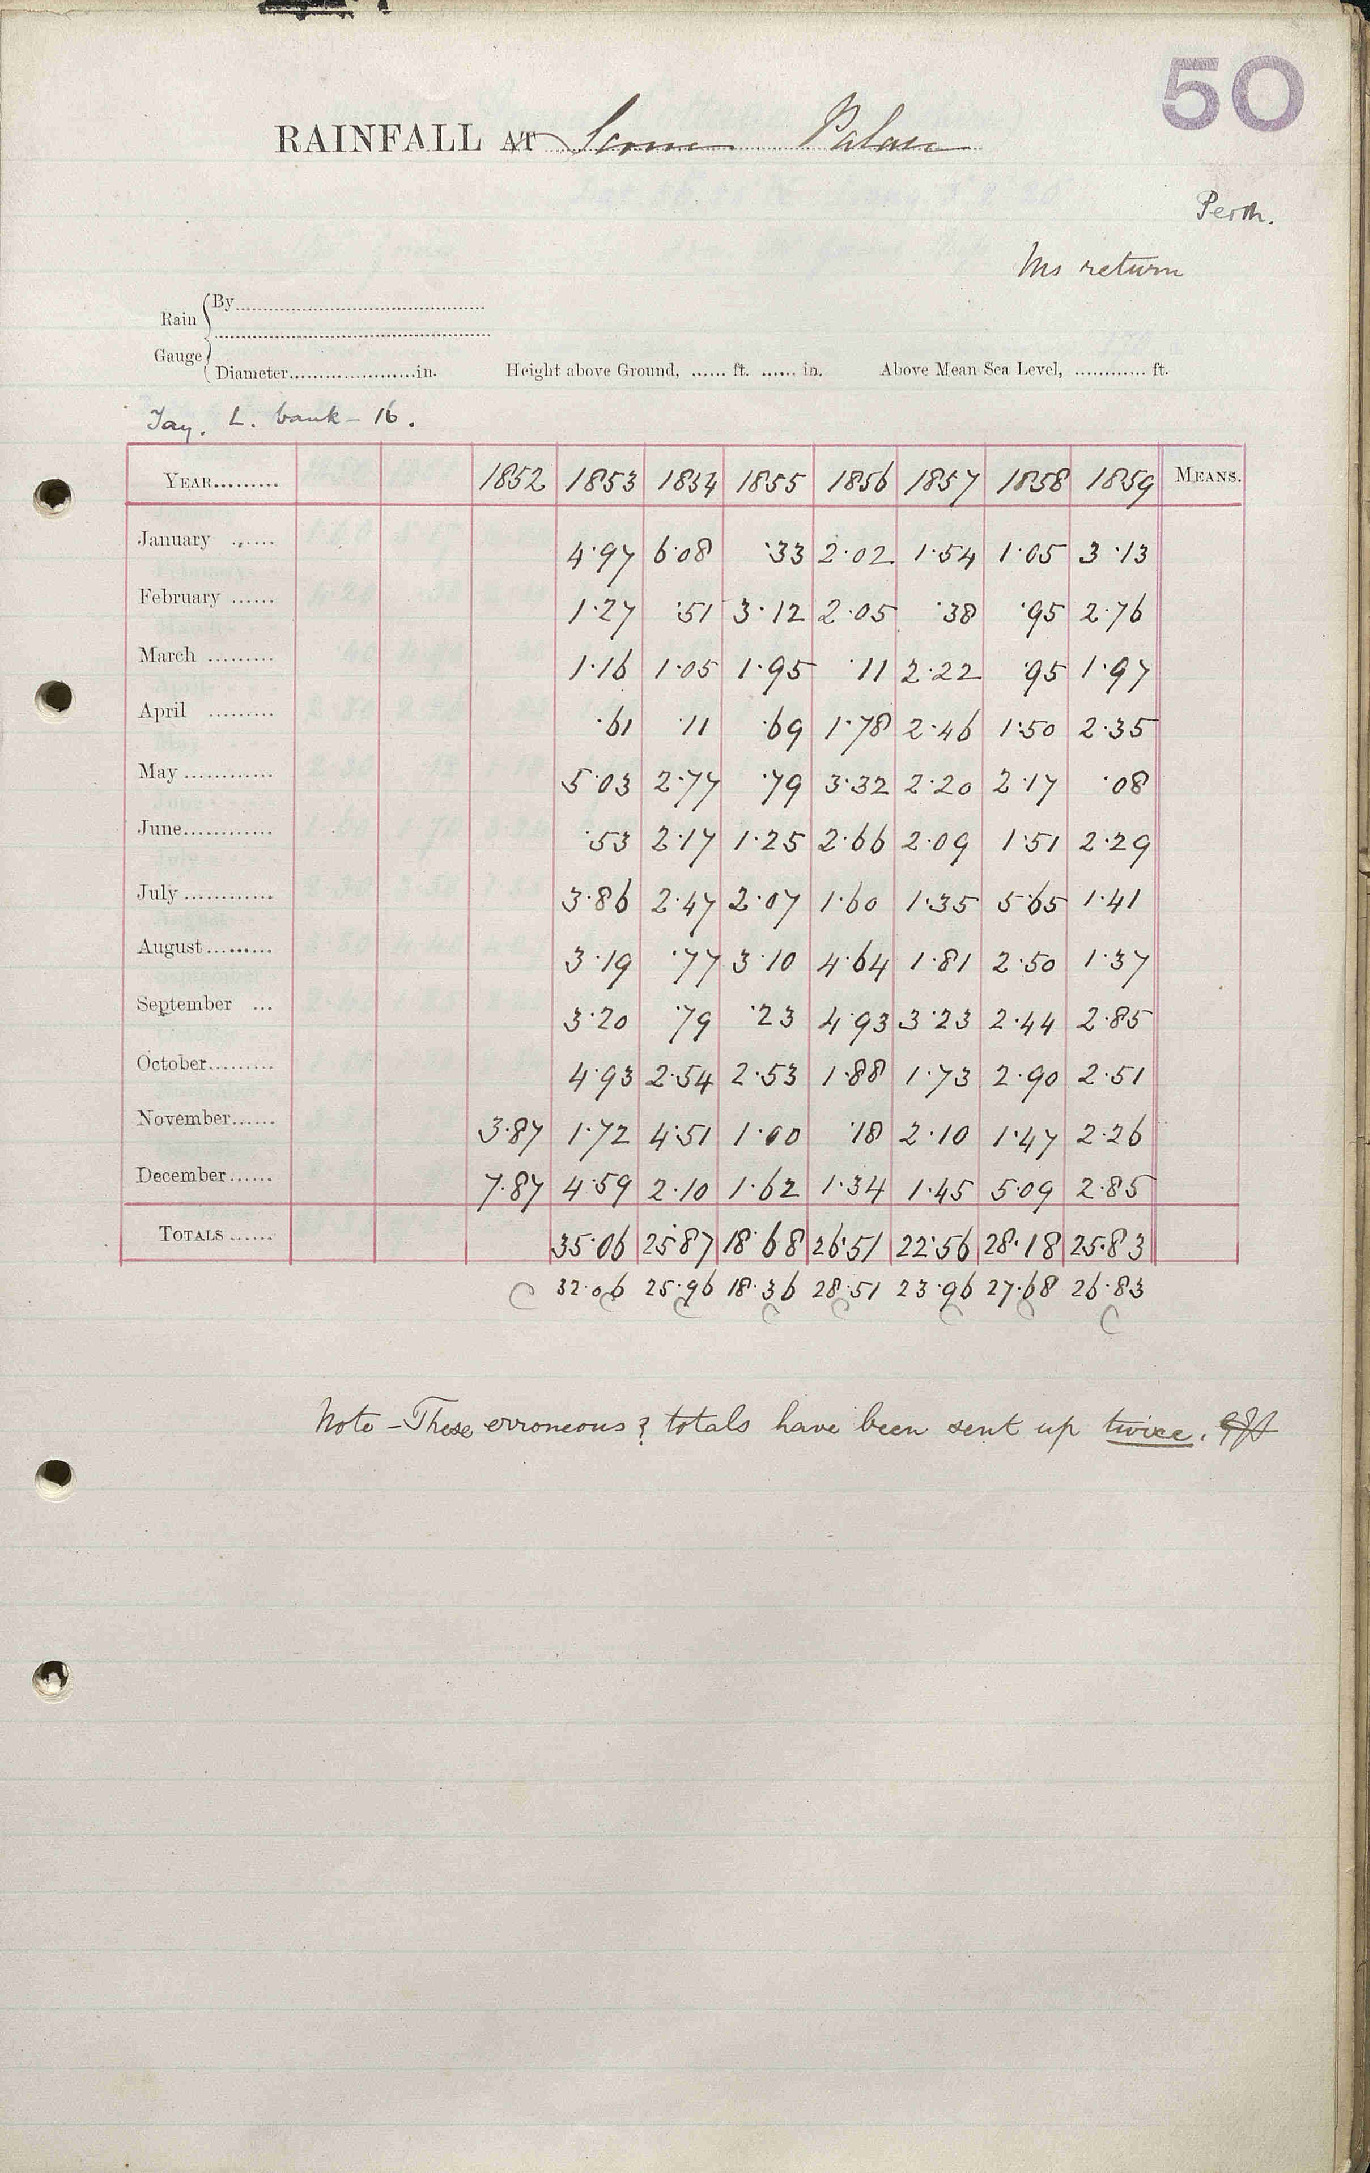 50
RAINFALL AT Scone Palace
Perth.
Ms return
Rain Gauge
By
Diameter in. Height above Ground, ft. in. Above Mean Sea Level, ft.
Tay. L. bank - 16.
YEAR 1852 1853 1854 1855 1856 1857 1858 1859 MEANS.
January 4·97 6·08 ·33 2·02 1·54 1·05 3·13
February 1·27 ·51 3·12 2·05 ·38 ·95 2·76
March 1·16 1·05 1·95 ·11 2·22 ·95 1·97
April ·61 ·11 ·69 1·78 2·46 1·50 2·35
May 5·03 2·77 ·79 3·32 2·20 2·17 ·08
June ·53 2·17 1·25 2·66 2·09 1·51 2·29
July 3·86 2·47 2·07 1·60 1·35 5·65 1·41
August 3·19 ·77 3·10 4·64 1·81 2·50 1·37
September 3·20 ·79 ·23 4·93 3·23 2·44 2·85
October 4·93 2·54 2·53 1·88 1·73 2·90 2·51
November 3·87 1·72 4·51 1·00 ·18 2·10 1·47 2·26
December 7·87 4·59 2·10 1·62 1·34 1·45 5·09 2·85
TOTALS 35·06 25·87 18·68 26·51 22·56 28·18 25·83
C 32·06 25·96 18·36 28·51 23·96 27·68 26·83
C C C C C C C
Note - These erroneous ? totals have been sent up twice.